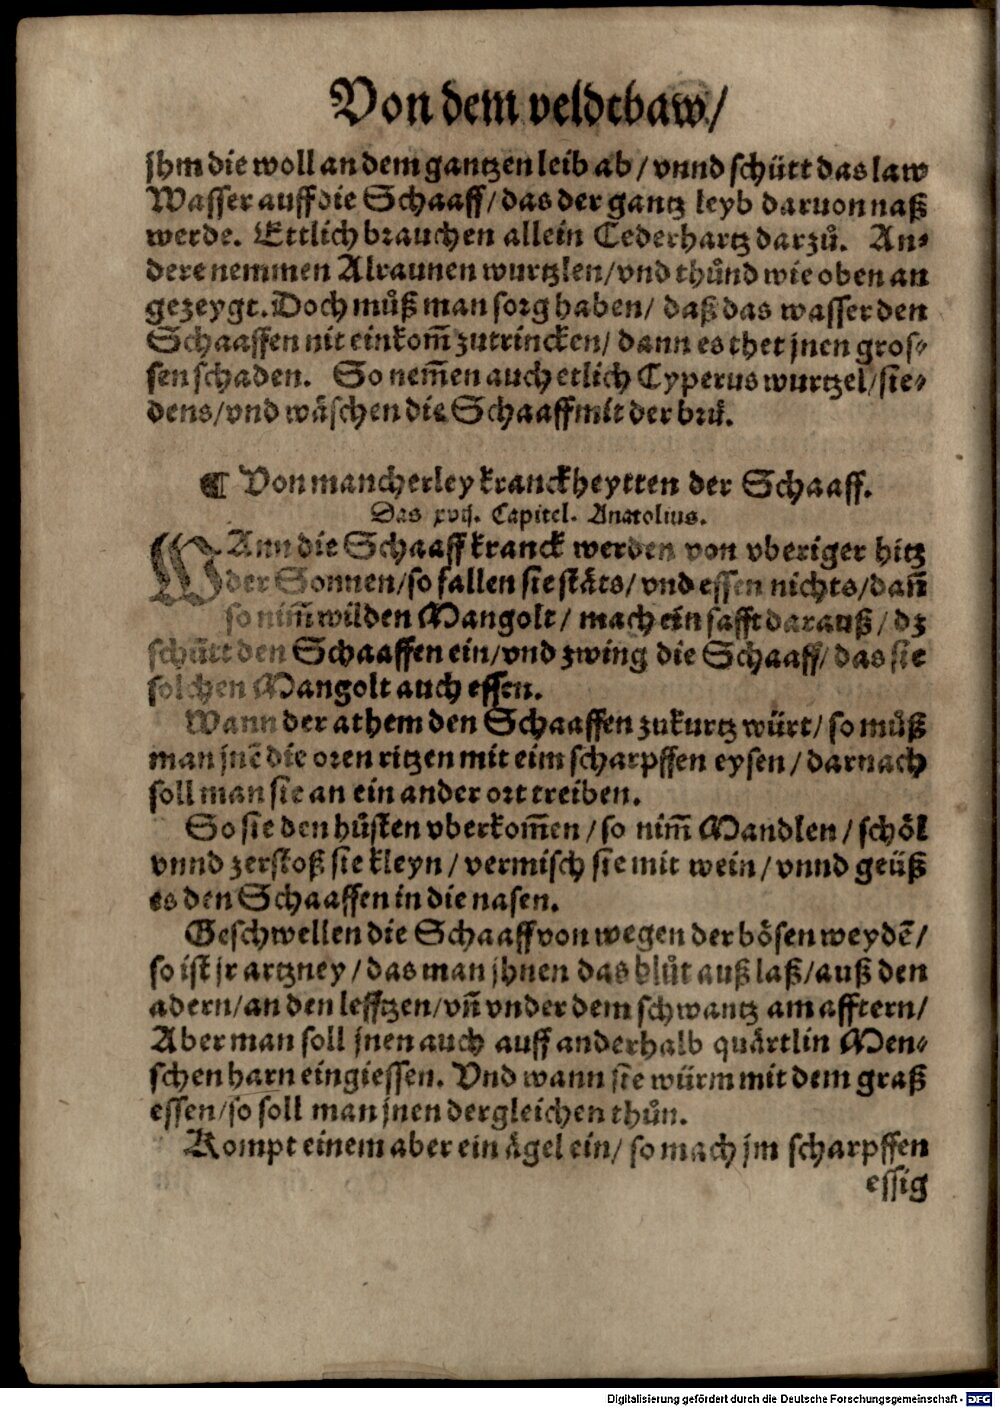 Von dem veldtbaw/
jhm die woll an dem gantzen leib ab / vnnd schütt das law
Wasser auff die Schaaff / das der gantz leyb daruon naß
werde. Ettlich brauchen allein Cederhartz darzů. An⸗
dere nemmen Alraunen wurtzlen/ vnd thůnd wie oben an
gezeygt. Doch můß man sorg haben/ daß das wasser den
Schaaffen nit einkom̃ zutrincken/ dann es thet jnen gros⸗
sen schaden. So nem̃en auch etlich Cyperus wurtzel/ sie⸗
dens/ vnd wäschen die Schaaff mit der brü.
¶ Von mancherley kranckheytten der Schaaff.
Das xvij. Capitel. Anatolius.
WAnn die Schaaff kranck werden von vberiger hitz
der Sonnen/ so fallen sie stäts/ vnd essen nichts/ dañ
so nim̃ wilden Mangolt / mach ein safft darauß / dz
schütt den Schaaffen ein/ vnd zwing die Schaaff/ das sie
solchen Mangolt auch essen.
Wann der athem den Schaaffen zukurtz würt/ so můß
man jnē die oren ritzen mit eim scharpffen eysen / darnach
soll man sie an ein ander ort treiben.
So sie den hůsten vberkom̃en / so nim̃ Mandlen / schöl
vnnd zerstoß sie kleyn / vermisch sie mit wein / vnnd geüß
es den Schaaffen in die nasen.
Geschwellen die Schaaff von wegen der bösen weydē/
so ist jr artzney / das man jhnen das blůt auß laß/ auß den
adern/ an den lefftzen/ vñ vnder dem schwantz am afftern/
Aber man soll jnen auch auff anderhalb quärtlin Men⸗
schen harn eingiessen. Vnd wann sie würm mit dem graß
essen/ so soll man jnen dergleichen thůn.
Kompt einem aber ein ägel ein/ so mach jm scharpffen
essig
Digitalisierung gefördert durch die Deutsche Forschungsgemeinschaft - DFG